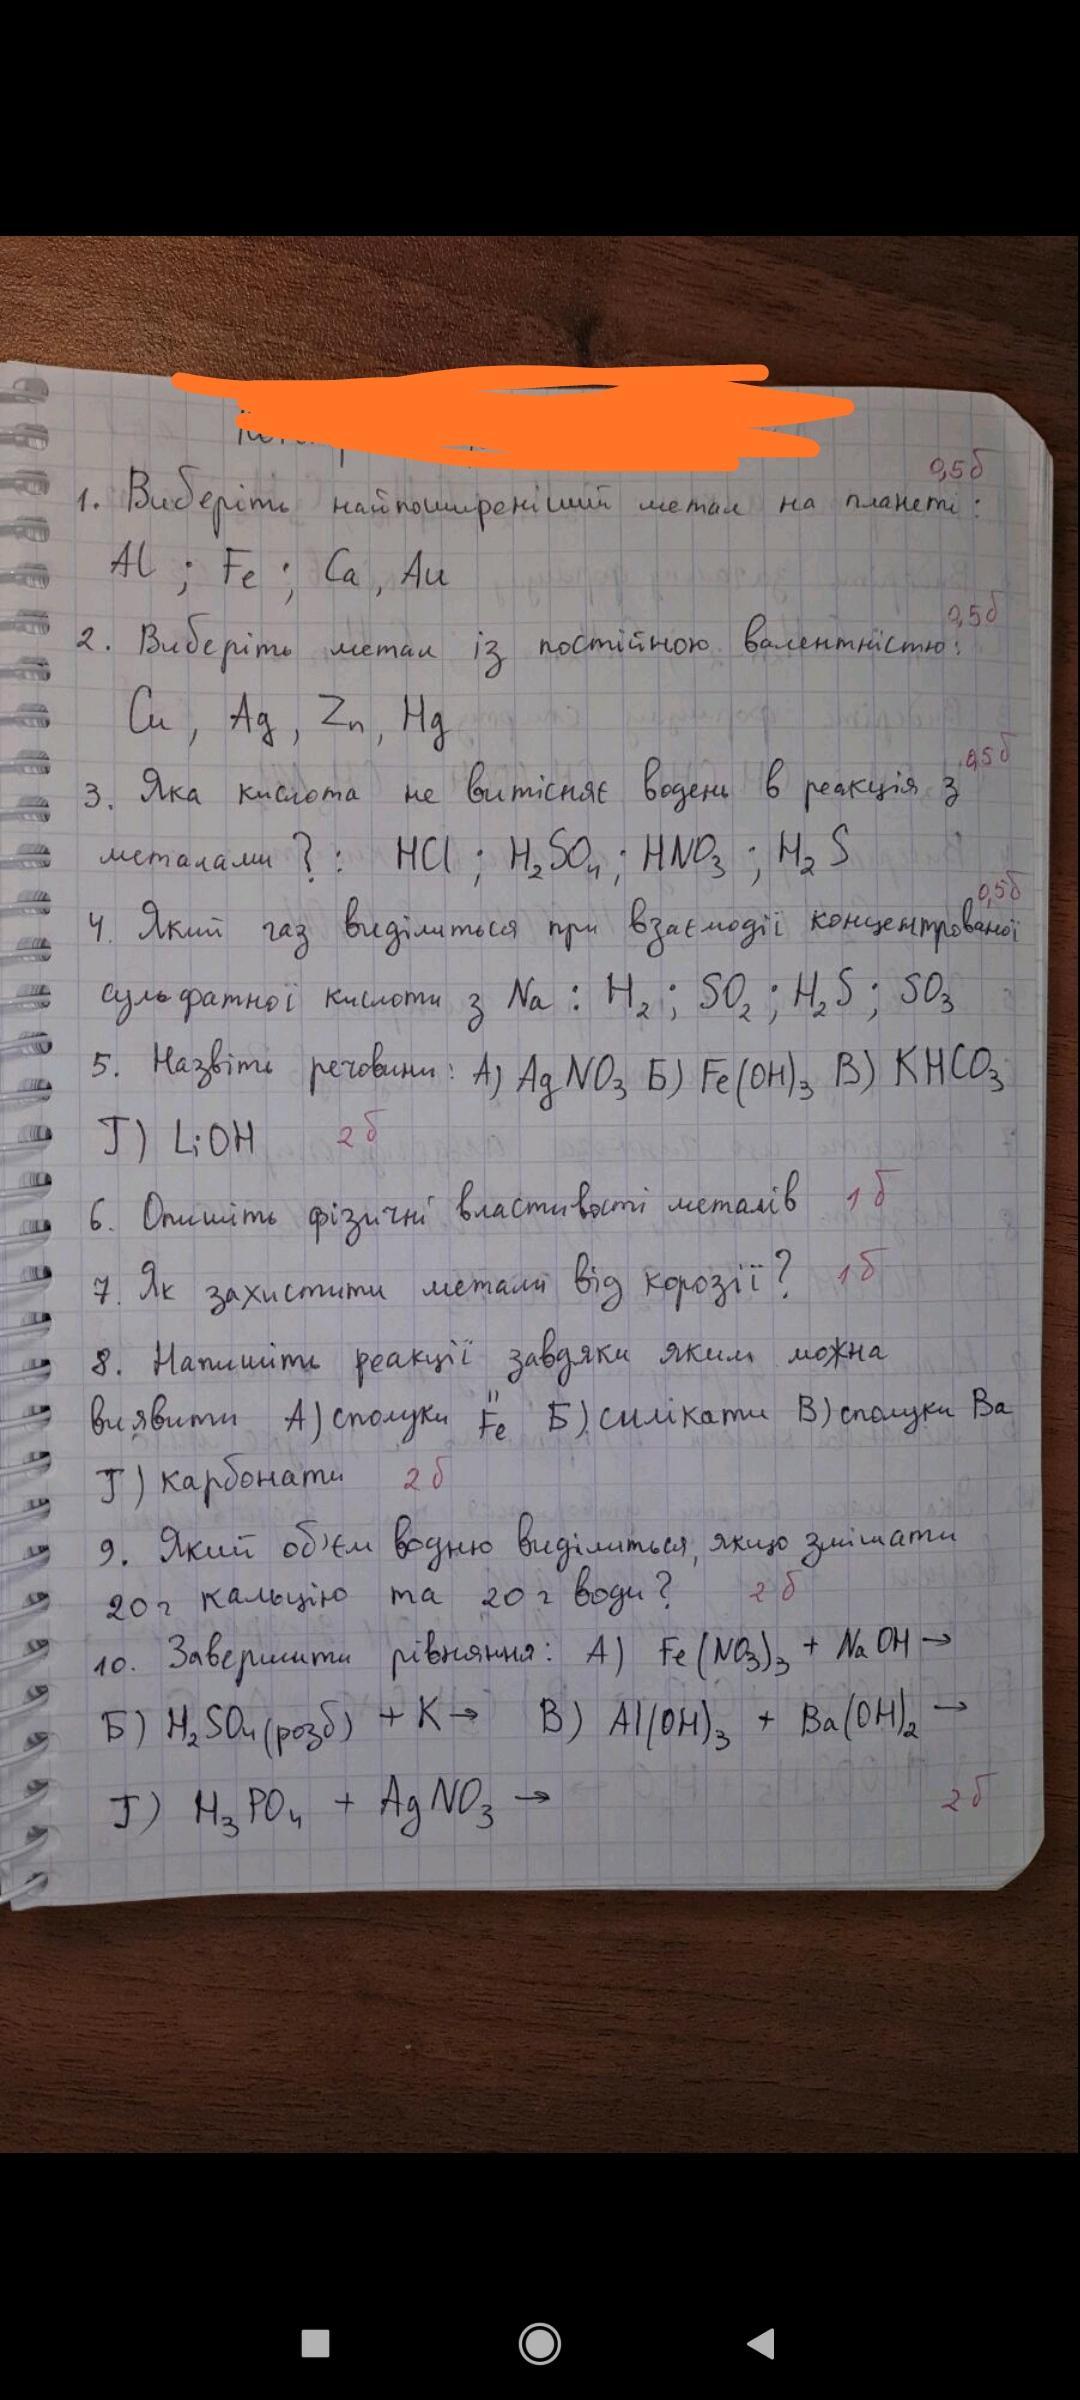 0,5б
1. Виберіть найпоширеніший метал на планеті:
Al ; Fe ; Ca , Au
0,5б
2. Виберіть метал із постійною валентністю:
Cu , Ag , Zn , Hg
0,5б
3. Яка кислота не витісняє водень в реакція з
металами ? : HCl ; H₂SO₄ ; HNO₃ ; H₂S
0,5б
4. Який газ виділиться при взаємодії концентрованої
сульфатної кислоти з Na : H₂ ; SO₂ ; H₂S ; SO₃
5. Назвіть речовини: А) AgNO₃ Б) Fe(OH)₃ В) KHCO₃
Г) LiOH 2б
6. Опишіть фізичні властивості металів 1б
7. Як захистити метали від корозії? 1б
8. Напишіть реакції завдяки яким можна
виявити А) сполуки Fe Б) силікати В) сполуки Ba
Г) карбонати 2б
9. Який об'єм водню виділиться, якщо змішати
20г кальцію та 20г води? 2б
10. Завершити рівняння: А) Fe(NO₃)₃ + NaOH →
Б) H₂SO₄(розб) + K → В) Al(OH)₃ + Ba(OH)₂ →
Г) H₃PO₄ + AgNO₃ → 2б